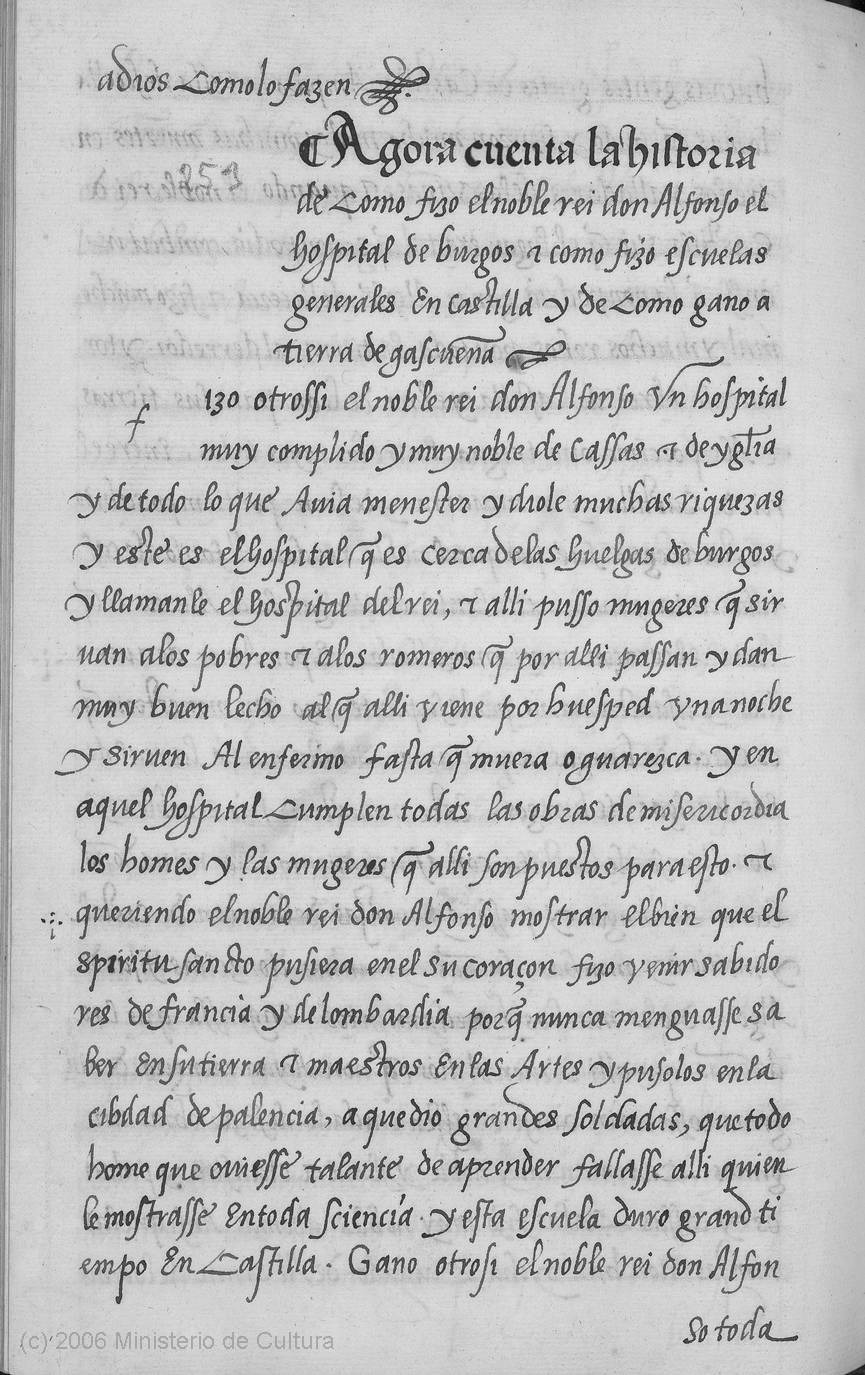 adios Como lo fazen
Agora cuenta la historia
de Como fizo el noble rei don Alfonso el
hospital de burgos ⁊ como fizo escuelas
generales En castilla y de Como gano a
tierra de gascueña
f
izo otrossi el noble rei don Alfonso Vn hospital
muy complido y muy noble de Cassas ⁊ de yglīa
y de todo lo que Auia menester y diole muchas riquezas
y este es el hospital q̄ es cerca de las huelgas de burgos
y llamanle el hospital del rei, ⁊ alli pusso mugeres q̄ sir
uan alos pobres ⁊ alos romeros q̄ por alli passan y dan
muy buen lecho al q̄ alli viene por huesped vna noche
y siruen Al enfermo fasta q̄ muera o guarezca. y en
aquel hospital Cumplen todas las obras de misericordia
los homes y las mugeres q̄ alli son puestos para esto. ⁊
queriendo el noble rei don Alfonso mostrar el bien que el
spiritu sancto pusiera en el su coraçon fizo venir sabido
res de francia y de lombardia porq̄ nunca menguasse sa
ber En su tierra ⁊ maestros En las Artes y pusolos en la
cibdad de palencia, a que dio grandes soldadas, que todo
home que ouiesse talante de aprender fallasse alli quien
le mostrasse En toda sciencia. y esta escuela duro grand ti
empo En Castilla. Gano otrosi el noble rei don Alfon
so toda
(c) 2006 Ministerio de Cultura